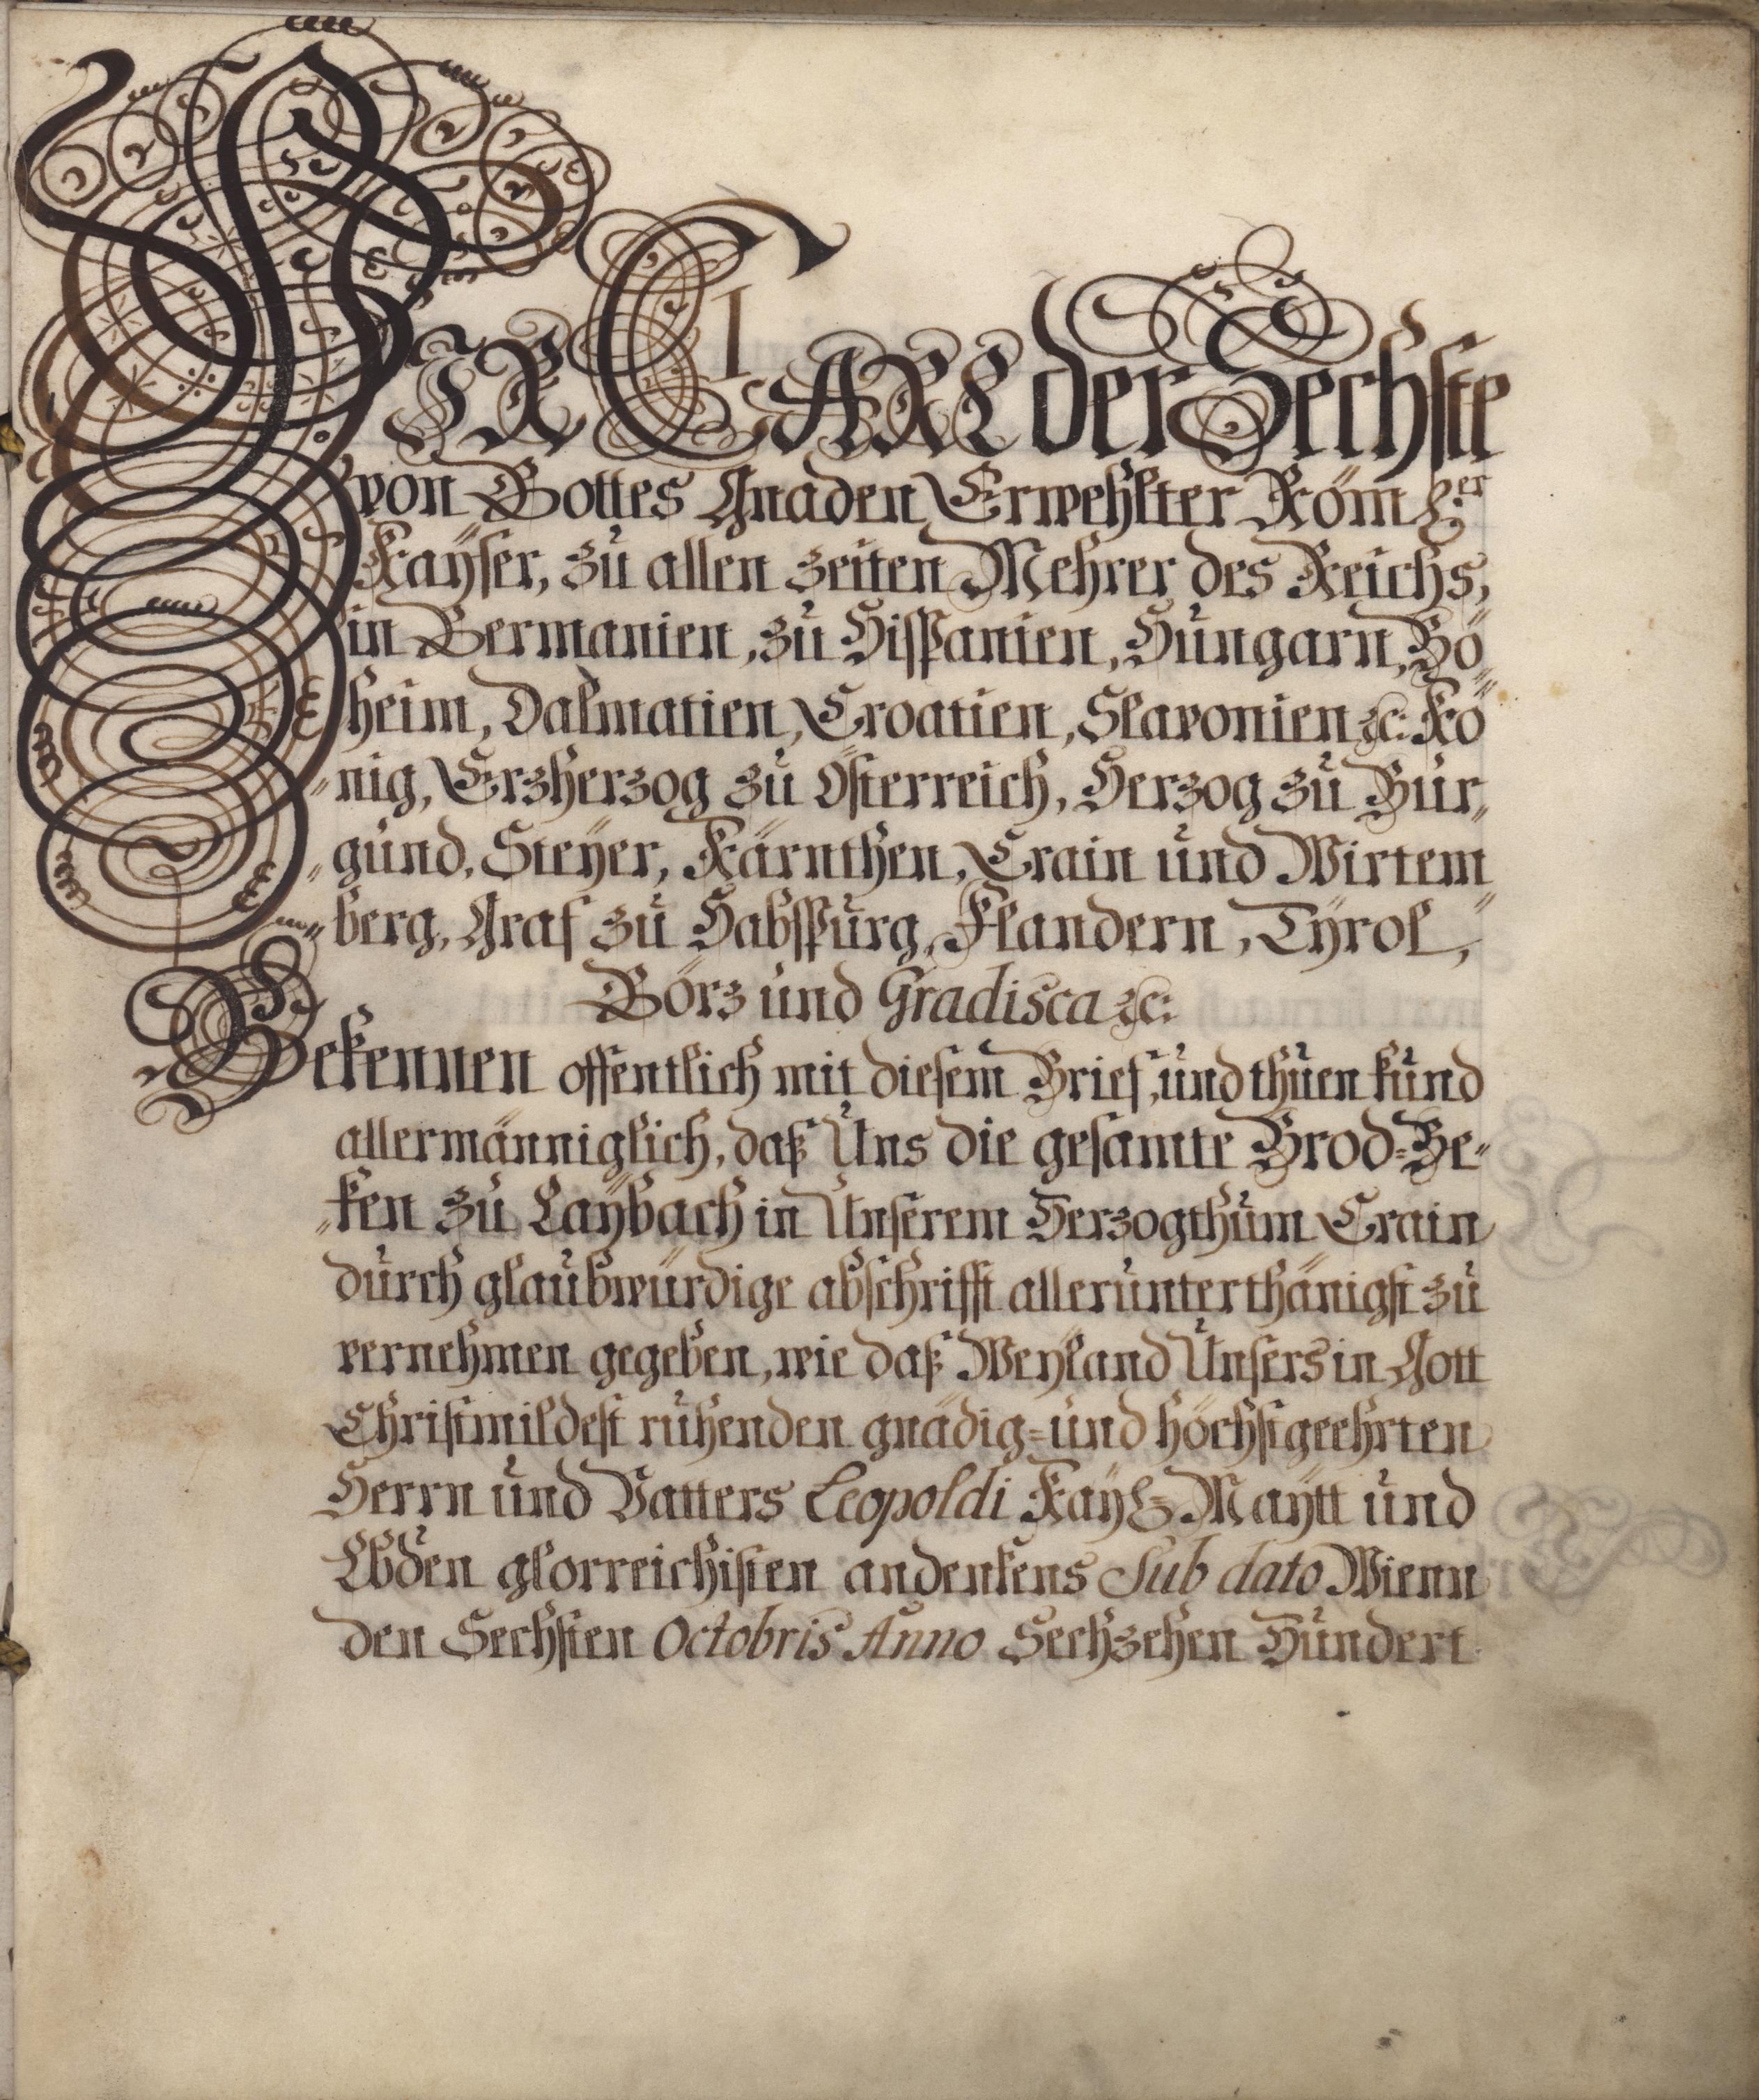 WIR CARL der Sechste
von Gottes Gnaden Erwehlter Röm:er
Kayser, zu allen zeiten Mehrer des Reichs,
in Germanien, zu Hispanien, Hungarn, Bö„
heim, Dalmatien, Croatien, Slavonien ꝛc: Kö„
„nig, Erzherzog zu Österreich, Herzog zu Bur„
„gund, Steÿer, Kärnthen, Crain und Wirtem„
„berg, Graf zu Habspurg, Flandern, Tÿrol,
Görz und Gradisca ꝛc:
Bekennen offentlich mit diesem Brief, und thuen kund
allermänniglich, daß Uns die gesamte Brod-Be„
„ken zu Laÿbach in Unserem Herzogthum Crain
durch glaubwürdige abschrifft allerunterthänigst zu
vernehmen gegeben, wie daß Weÿland Unsers in Gott
Christmildest ruhenden gnädig- und höchstgeehrten
Herrn und Vatters Leopoldi Kaÿ: Maÿtt und
Lbden glorreichisten andenkens Sub dato Wienn
den Sechsten Octobris Anno Sechzehen Hundert